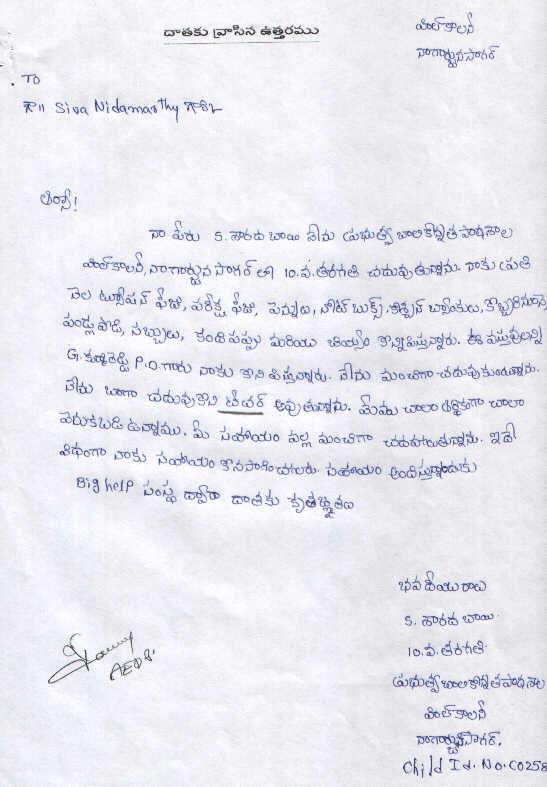 దాతకు వ్రాసిన ఉత్తరము
హిల్ కాలనీ
నాగార్జునసాగర్
TO
గౌ॥ Siva Nidamarthy గారికి
నా పేరు S. శారద బాయి నేను ప్రభుత్వ బాలికోన్నత పాఠశాల
హిల్ కాలనీ, నాగార్జున సాగర్ లో 10.వ. తరగతి చదువుతున్నాను. నాకు ప్రతి
నెల ట్యూషన్ ఫీజు, పరీక్ష ఫీజు, పెన్నులు, నోట్ బుక్స్, క్వశ్చన్ బ్యాంకులు, కొబ్బరినూనె
పండ్లపొడి, సబ్బులు, కందిపప్పు మరియు బియ్యం కొనిపిస్తున్నారు. ఈ వస్తువులన్ని
G. కృష్ణారెడ్డి P.O గారు నాకు కొని పిస్తున్నారు. నేను మంచిగా చదువుకుంటున్నాను.
నేను బాగా చదువుకొని టీచర్ అవుతున్నాను. మేము చాలా ఆర్థికంగా చాలా
వెనుకబడి ఉన్నాము. మీ సహాయం వల్ల మంచిగా చదువుతున్నాను. ఇదే
విధంగా నాకు సహాయం కొనసాగించగలరు. సహాయం అందిస్తున్నందుకు
Big help సంస్థ ద్వారా దాతకు కృతజ్ఞతలు
భవదీయురాలు
S. శారద బాయి
10.వ. తరగతి
ప్రభుత్వ బాలికోన్నత పాఠశాల
హిల్ కాలనీ
నాగార్జునసాగర్.
Child Id. No. C0258